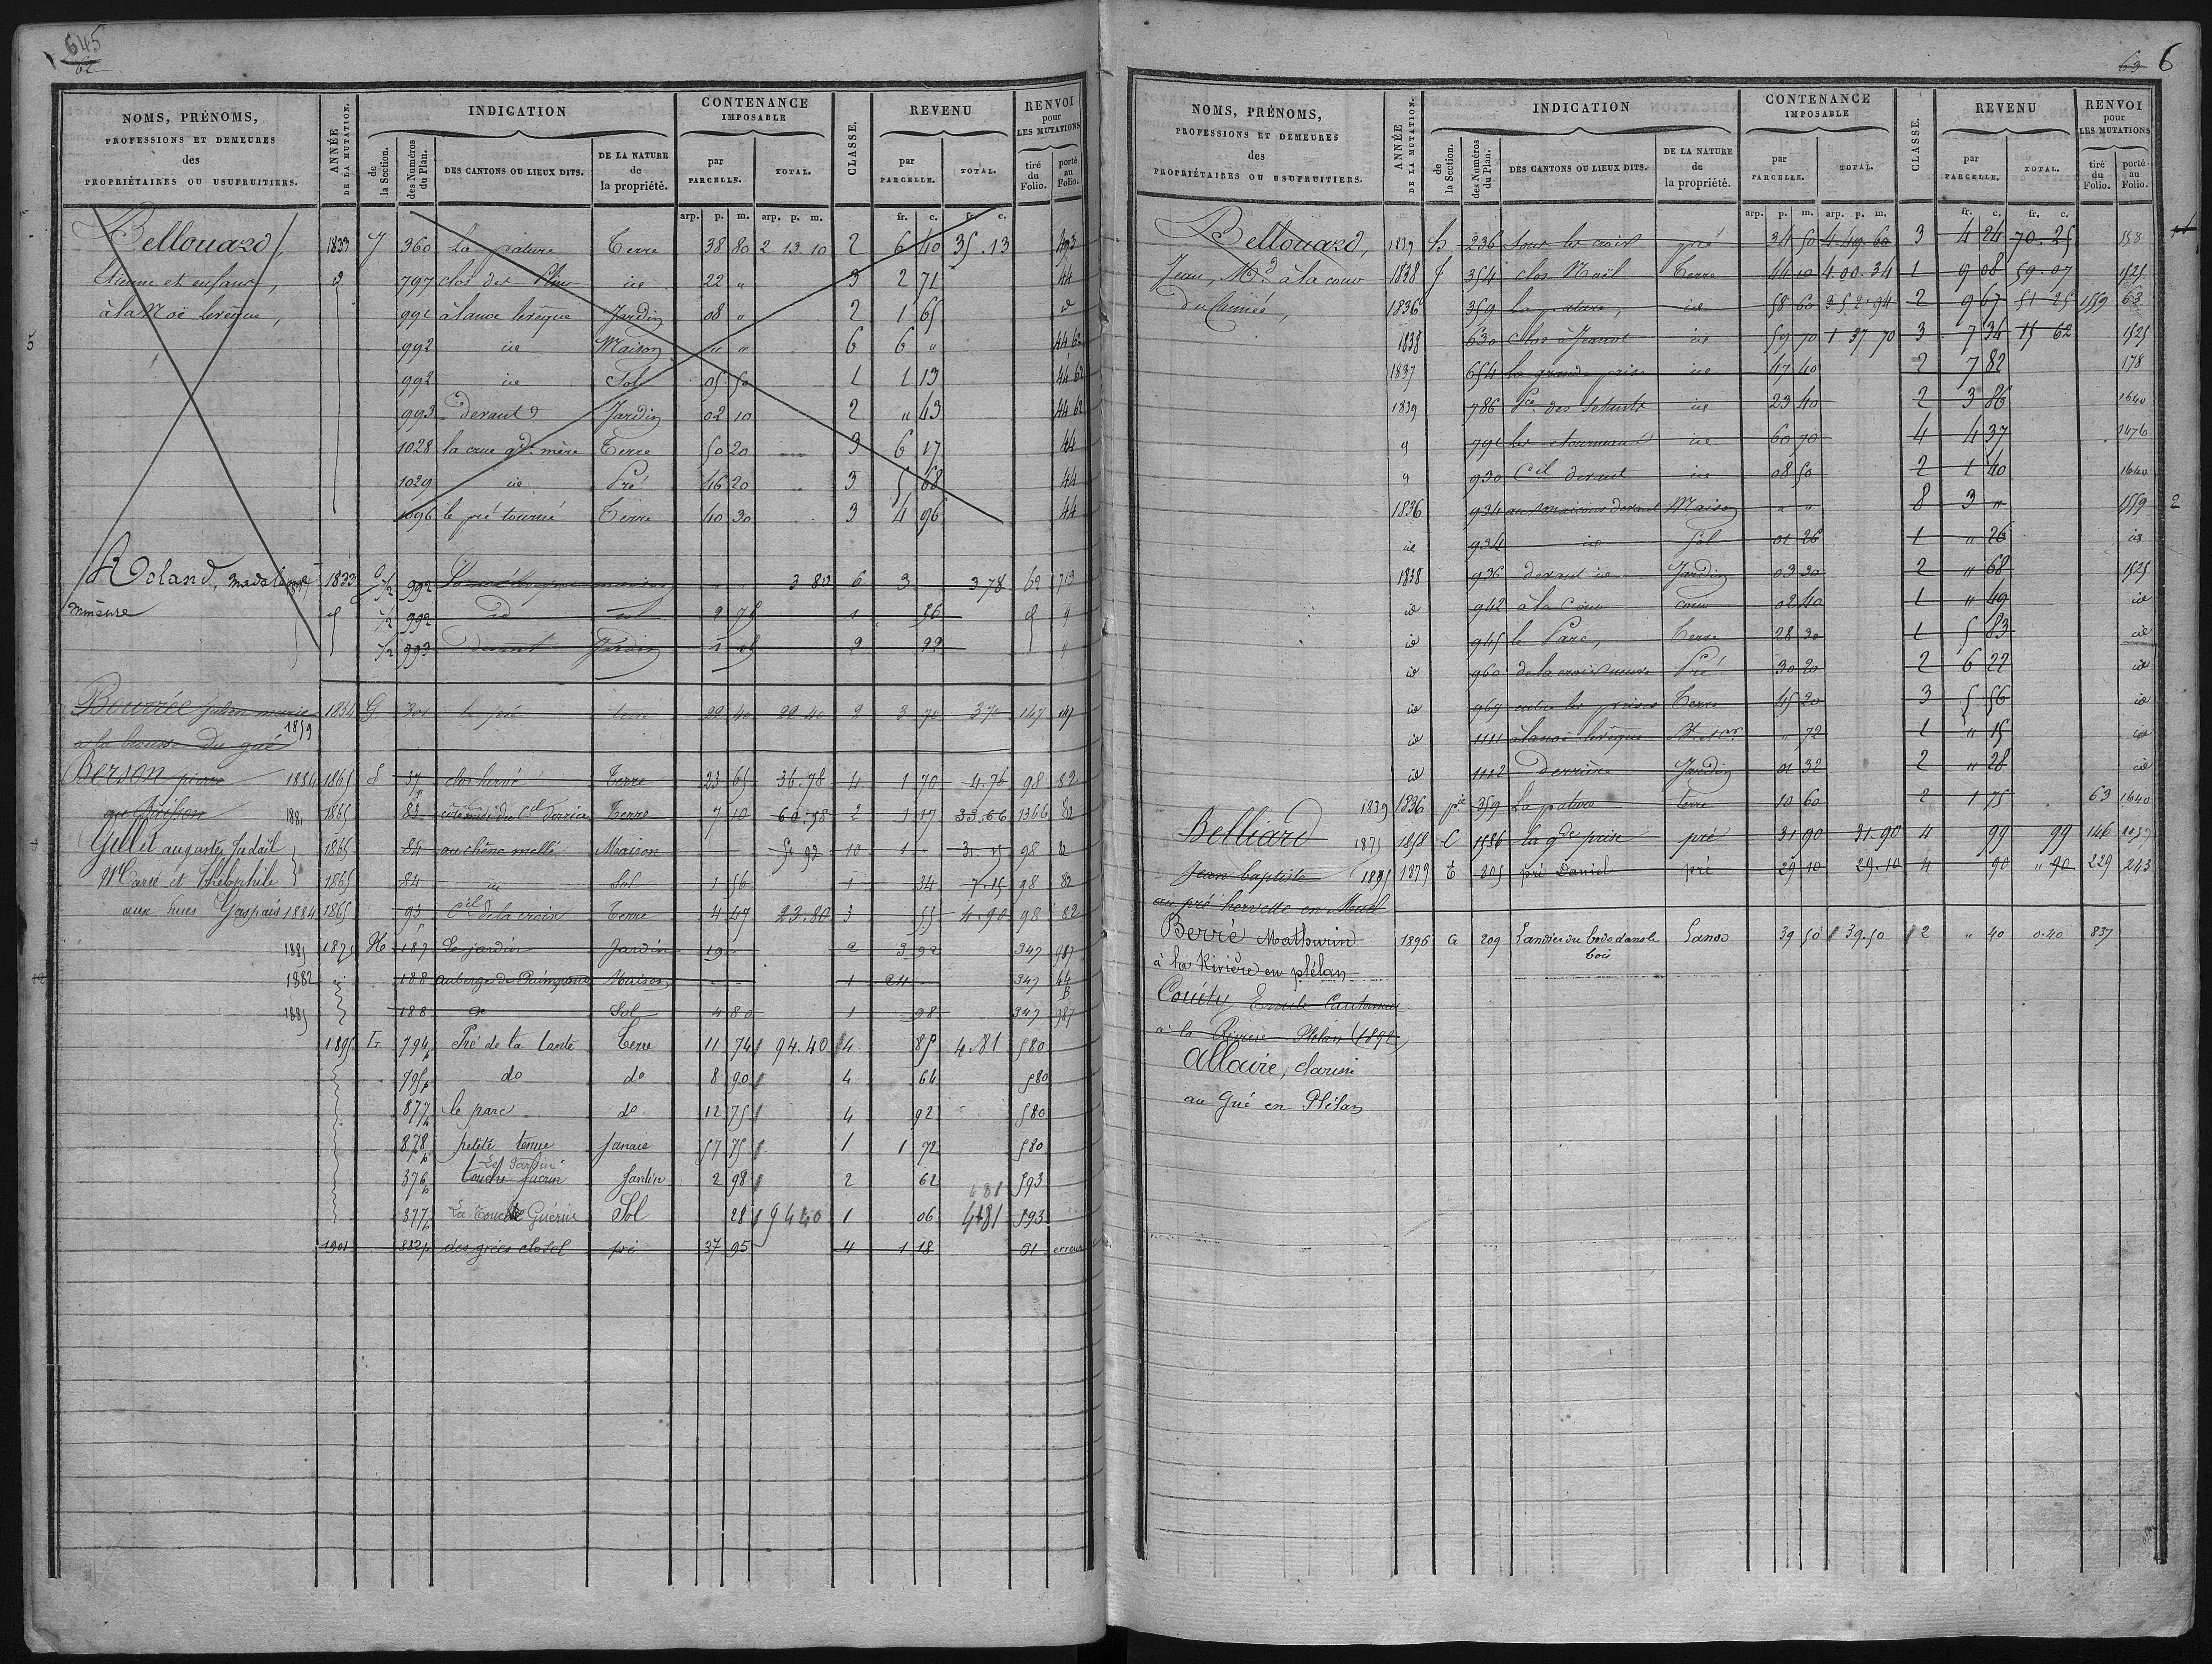 645
62
NOMS, PRÉNOMS,
PROFESSIONS ET DEMEURES
des
PROPRIÉTAIRES OU USUFRUITIERS.
ANNÉE
DE LA MUTATION.
INDICATION
de
la Section.
des Numéros
du Plan.
DES CANTONS OU LIEUX DITS.
DE LA NATURE
de
la propriété.
CONTENANCE
IMPOSABLE
par
PARCELLE.
TOTAL.
CLASSE.
REVENU
par
PARCELLE.
TOTAL.
RENVOI
pour
LES MUTATIONS
tiré
du
Folio.
porté
au
Folio.
arp. p. m. arp. p. m. fr. c. fr. c.
Bellouard, 1833 J 360 La pature Terre 38 80 2 13 10 2 6 40 35.13
Etienne et enfans, d 797 clos des 22 " 3 2 71 44
à la Noë levêque, 991 Jardin 08 " 2 1 65 d
5 992 id Maison " " 6 6 " 44 62
992 id Sol 05 50 1 1 13 44 62
993 devant Jardin 02 10 2 " 43 44 62
1028 la crue gde mère Terre 50 20 3 6 17 44
1029 id Pré 46 20 3 5 68 44
1096 le pré tourné Terre 40 30 3 4 96 44
Roland, madeleine 1833 G 1/2 992 3 80 6 3 3 78 62 719
mineure 1/2 992 id sol 2 75 1 56
1/2 993 devant Jardin 1 05 2 22
Bourrée julien marie 1854 G 301 le pré terre 22 40 22 40 2 3 70 3 70 147 147
1859
à la brousse du gué
Berson pierre 1884 1865 S 37 clos hervé Terre 23 65 36.78 4 1 70 4.76 98 82
au Buisson 1881 1865 83 derrière Terre 7 10 60.58 2 1 17 33.66 1366 82
Gillet auguste Judaïl 1865 84 au chêne mellé Maison 51 92 10 1 31.15 98 82
Nel Carré et théophile 1865 84 id Sol 1 56 1 34 7.15 98 82
aux hues Gaspais 1884 1865 95 Cil de la croix Terre 4 47 23.80 3 55 4.90 98 82
1885 1875 H 187 Le jardin Jardin 19 2 3 92 347 987
1882 188 auberge de Maison 1 24 347 44
B
1885 188 do Sol 4 80 1 98 347 987
1895 G 794 Pré de la tante Terre 11 74 94.40 4 85 4.81 580
795 do do 8 90 4 64 580
877 le parc do 12 75 4 92 580
878 petite tenue Janaie 57 75 1 1 72 580
Le Jardin
376 touche fuerin Jardin 2 98 2 62 593
377 La Touche Guérin Sol 28 94 40 1 06 4 81 593
1901 882 des grées closel pré 37 95 4 1 18 61 erreur
63 6
NOMS, PRÉNOMS,
PROFESSIONS ET DEMEURES
des
PROPRIÉTAIRES OU USUFRUITIERS.
ANNÉE
DE LA MUTATION.
INDICATION
de
la Section.
des Numéros
du Plan.
DES CANTONS OU LIEUX DITS.
DE LA NATURE
de
la propriété.
CONTENANCE
IMPOSABLE
par
PARCELLE.
TOTAL.
CLASSE.
REVENU
par
PARCELLE.
TOTAL.
RENVOI
pour
LES MUTATIONS
tiré
du
Folio.
porté
au
Folio.
arp. p. m. arp. p. m. fr. c. fr. c.
Bellouard, 1839 h 236 sous les croix pré 34 50 4.49.60 3 4 24 70.25 558
Jean, Md à la cour 1838 J 354 clos Noël Terre 44 10 4 00.34 1 9 08 59.07 1525
du Guinée, 1836 359 La pature, id 58 60 2 9 67 51 25 1559 63
1838 630 clos à Jeanot id 59 70 1 37 70 3 7 34 15 62 1525
1837 654 la grande prise id 47 40 2 7 82 178
1839 786 Pce des id 23 40 2 3 86 1640
791 les étourneaux id 60 70 4 4 37 1476
930 Cil devant id 08 50 2 1 40 1640
1836 934 aux maisons devant Maison " " 8 3 " 1559 2
id 934 id Sol 01 26 1 " 26 id
1838 936 devant id Jardin 03 30 2 " 68 1525
id 942 à la Cour cour 02 40 1 " 49 id
id 945 le Parc, Terre 28 30 1 5 83 id
id 960 de la croix Pré 30 20 2 6 22 id
id 967 entre les prises Terre 45 20 3 5 56 id
id 1111 à la noë levêque " 72 1 " 15 id
id 1112 derrière Jardin 01 32 2 " 28 id
1839 1836 pie 359 La pature terre 10 60 2 1 75 63 1640
Belliard 1875 1858 C 1586 la gde prise pré 31 90 31.90 4 99 99 146 1057
Jean baptiste 1895 1879 E 805 pré Daniel pré 29 10 29.10 4 90 " 90 229 243
au pré hervette en Muel
Berré Mathurin 1896 G 209 Landier du bodo dans le Lande 39 50 39.50 2 " 40 0.40 837
bois
à la Rivière en plélan
Couëty Emile Cantonnier
à la Rivière Plélan (1898)
Allaire, Clarisse
au Gué en Plélan